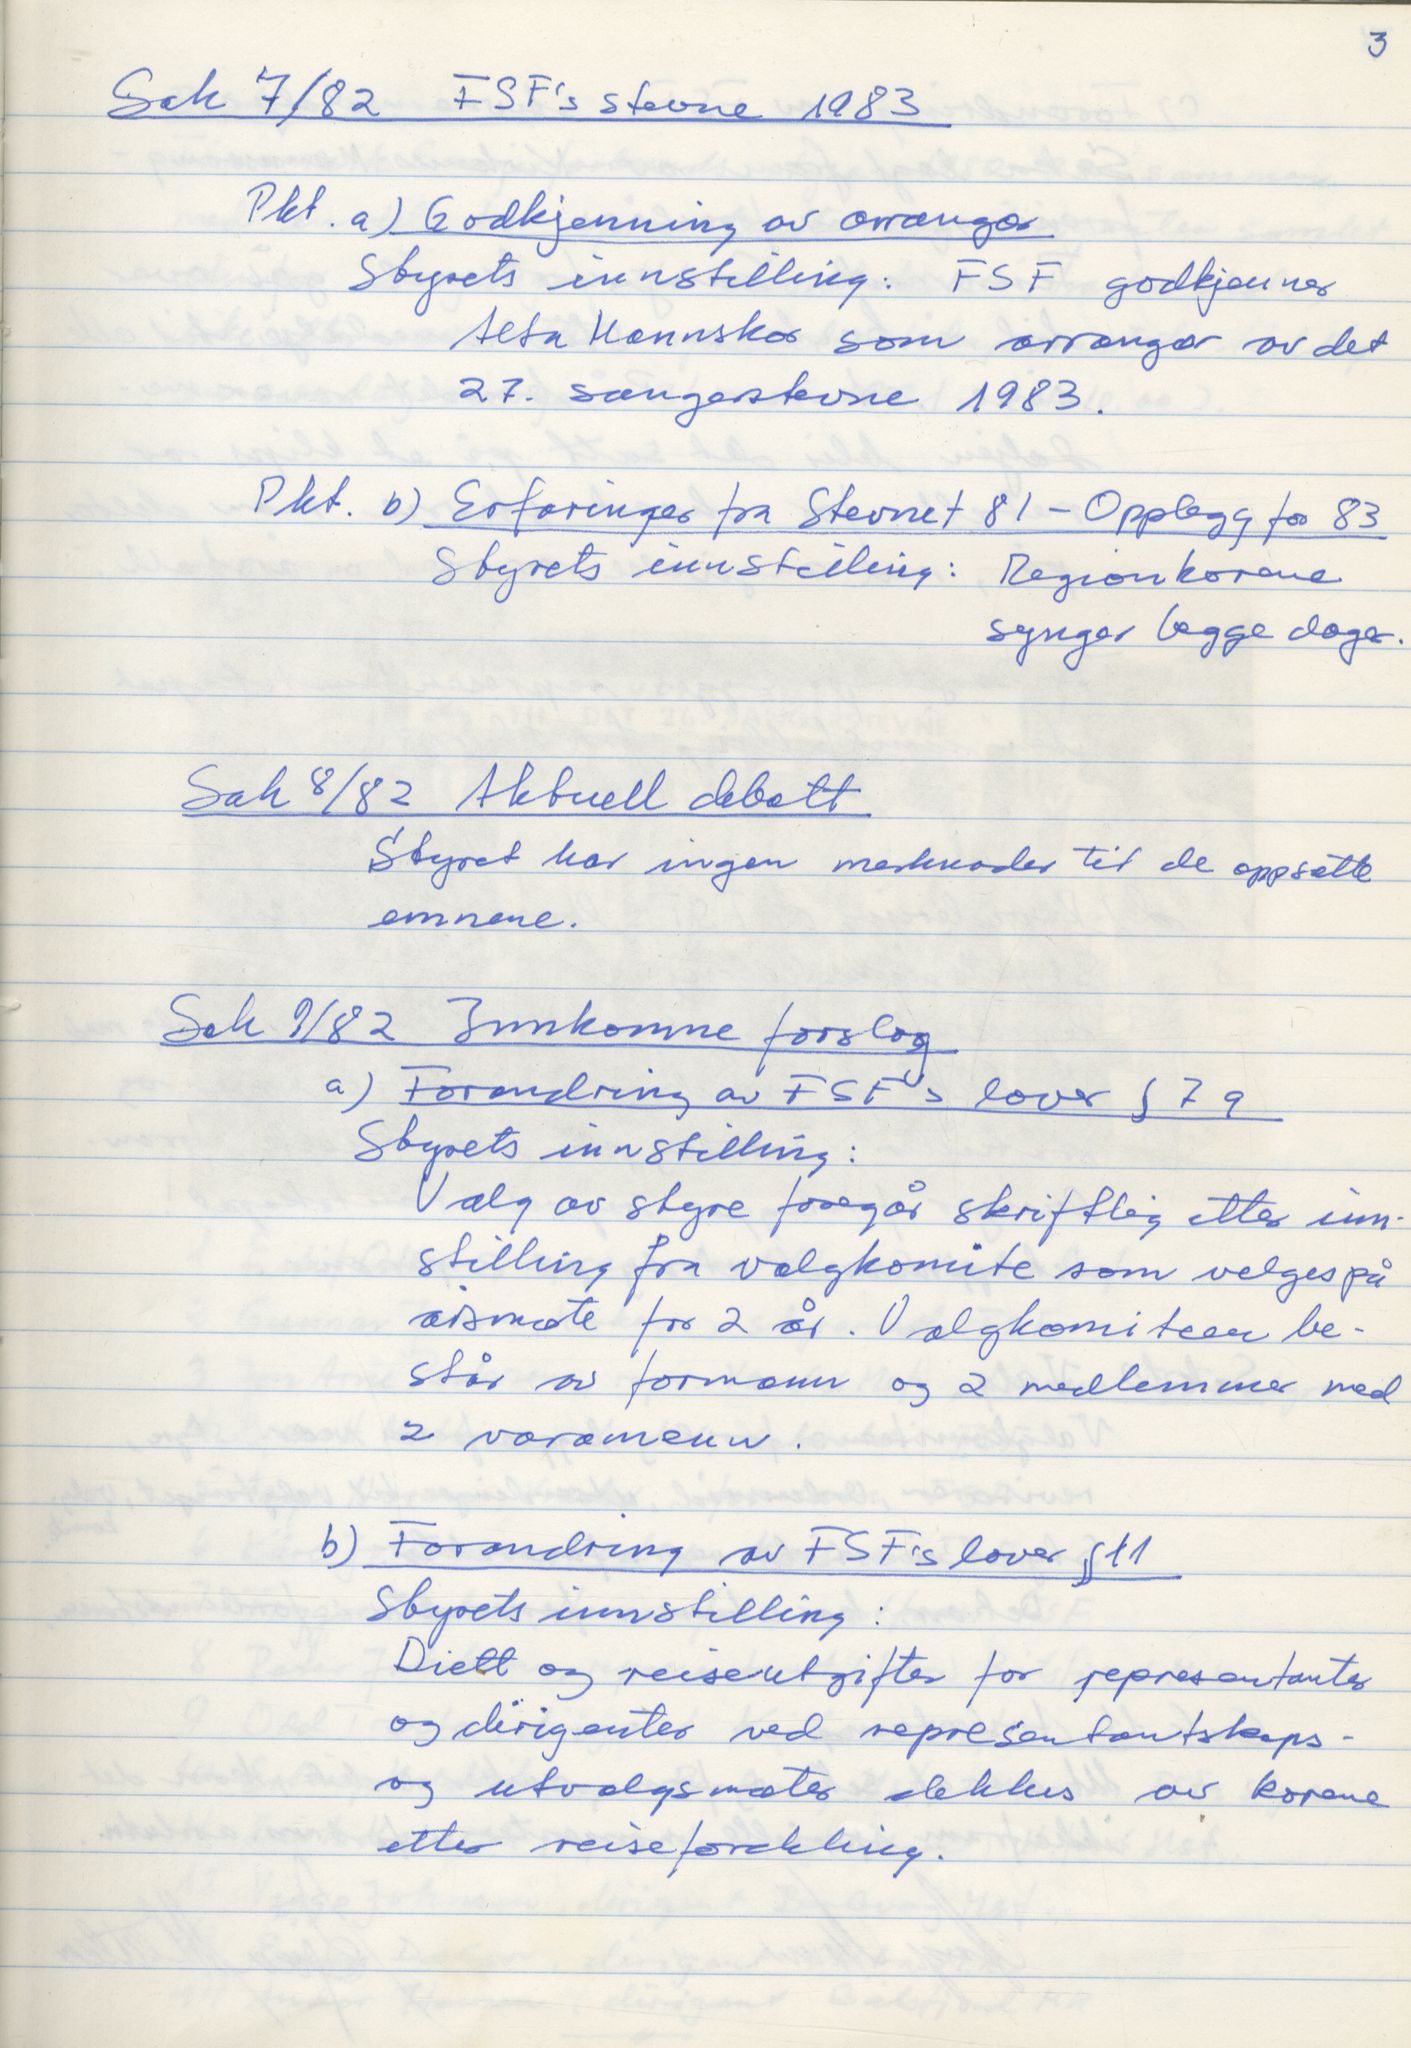 3
Sak 7/82 FSF's stevne 1983
Pkt. a) Godkjenning av arrangør
Styrets innstilling: FSF godkjenner
Alta Mannskor som arrangør av det
27. sangerstevne 1983.
Pkt. b) Erfaringer fra Stevnet 81 - Opplegg for 83
Styrets innstilling: Regionkorene
synger begge dager.
Sak 8/82 Aktuell debatt
Styret har ingen merknader til de oppsatte
emnene.
Sak 9/82 Innkomne forslag
a) Forandring av FSF's lover § 7a
Styrets innstilling:
Valg av styre foregår skriftlig etter inn-
stilling fra valgkomite som velges på
årsmøte for 2 år. Valgkomiteen be-
står av formann og 2 medlemmer med
2 varamenn.
b) Forandring av FSF's lover § 11
Styrets innstilling:
Diett og reiseutgifter for representanter
og dirigenter ved representantskaps-
og utvalgsmøter dekkes av korene
etter reisefordeling.